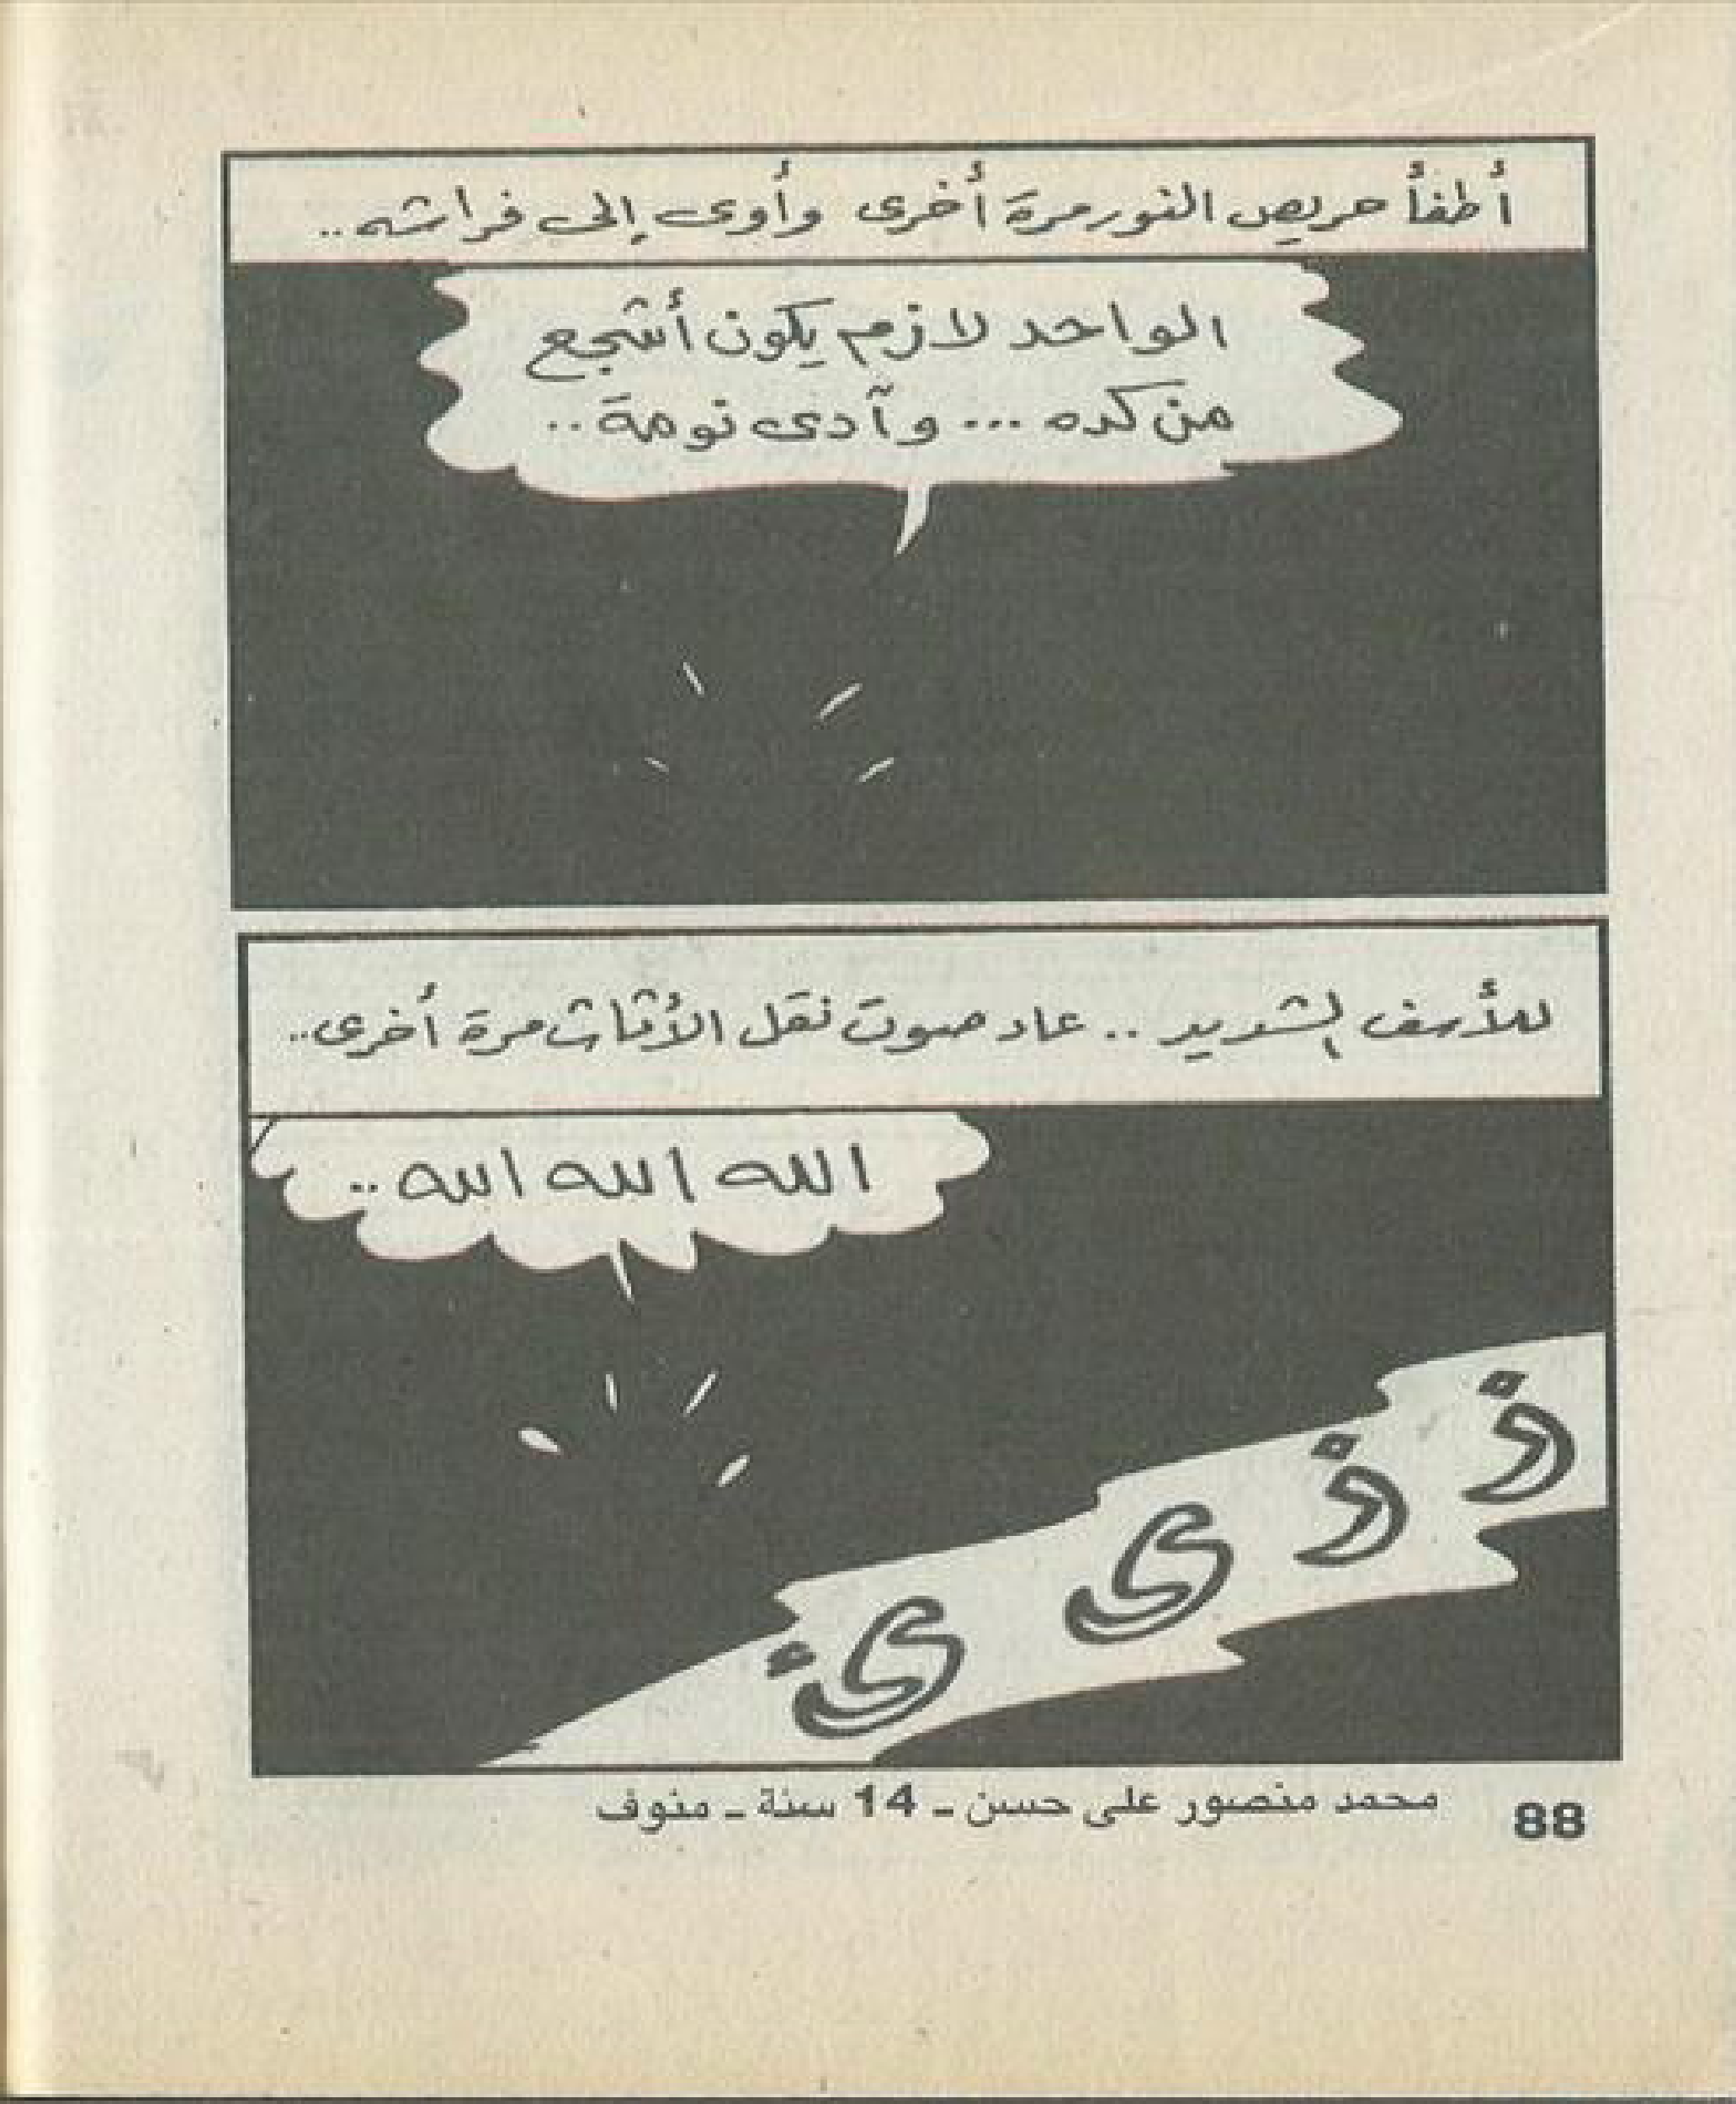 أطفأ حريص النور مرة أخرى وأوى إلى فراشه..
الواحد لازم يكون أشجع
من كده ... وآدى نومة..
للأسف الشديد .. عاد صوت نقل الأثاث مرة أخرى..
الله الله الله ..
ز ز ى ئ
محمد منصور على حسن ـ 14 سنة ـ منوف
88